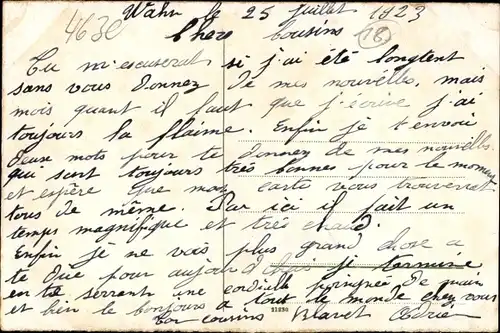 4630
Wahn le 25 juillet 1923
18
Chere Cousins
Tu m'escuserat si j'ai été longtent
sans vous donnez de mes nouvelles, mais
mois quant il faut que j'écrive j'ai
toujours la flaime. Enfin je t'envoi
deux mots pour te donnez de mes nouvelles
qui sont toujours très bonnes pour le moment
et espère que ma carte vous trouverat
tous de même. Par ici il fait un
temps magnifique et très chaud.
Enfin je ne vois plus grand chose a
te dire pour aujourd'hui je termine
en te serrant une cordielle poignée de main
et bien le bonjours a tout le monde chez vous
Ton cousins Blavet Adrien
21230